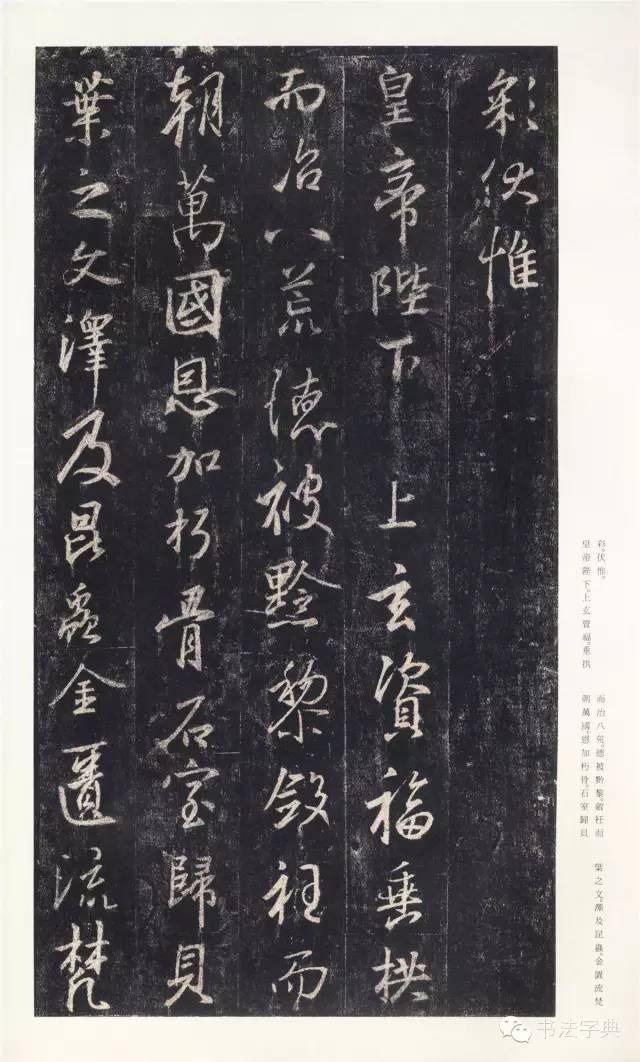 彩伏惟
皇帝陛下上玄資福垂拱
而治八荒德被黔黎斂衽而
朝萬國恩加朽骨石室歸貝
葉之文澤及昆蟲金匱流梵
彩。伏惟。
皇帝陛下。上玄資福。垂拱
而治八荒。德被黔黎。斂衽而
朝萬國。恩加朽骨。石室歸貝
葉之文。澤及昆蟲。金匱流梵
书法字典